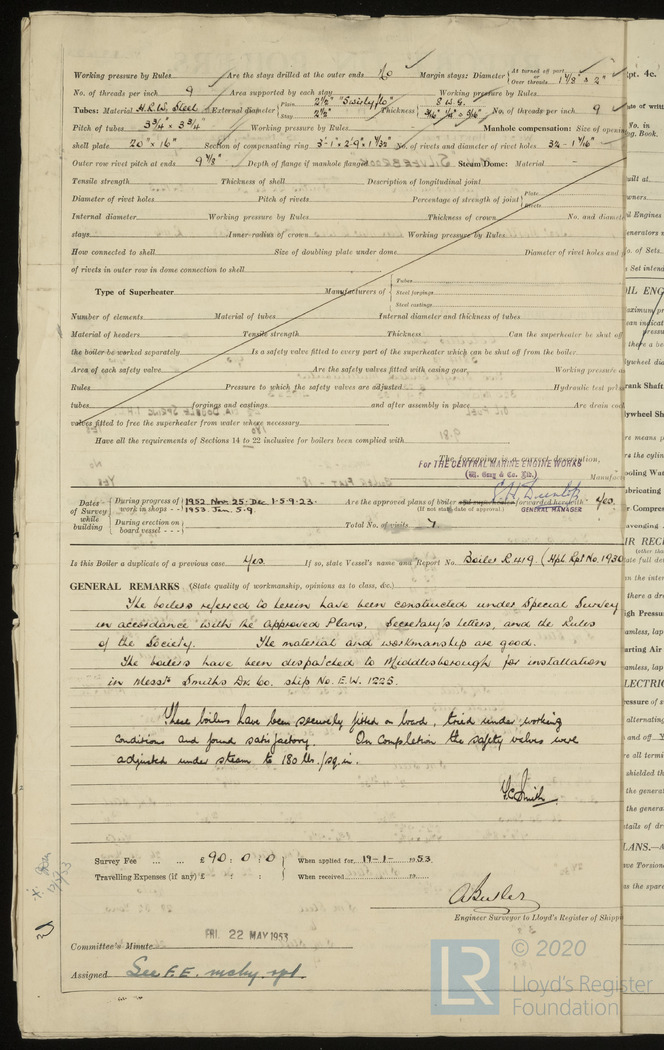 Working pressure by Rules Are the stays drilled at the outer ends No Margin stays: Diameter { At turned off part, or Over threads 1 7/8" & 2"
No. of threads per inch 9 Area supported by each stay Working pressure by Rules
Tubes: Material H.R.W. Steel External diameter { Plain 2½" "Swirlyflo" Stay 2½" Thickness { 8 W.G. 3/16" ¼" & 5/16" No. of threads per inch 9
Pitch of tubes 3¾" × 3¾" Working pressure by Rules Manhole compensation: Size of opening
shell plate 20" × 16" Section of compensating ring 3'-1" × 2'-9" × 1 11/32" No. of rivets and diameter of rivet holes 34 - 1 1/16"
Outer row rivet pitch at ends 9 7/8" Depth of flange if manhole flanged Steam Dome: Material -
Tensile strength Thickness of shell Description of longitudinal joint
Diameter of rivet holes Pitch of rivets Percentage of strength of joint { Plate Rivets
Internal diameter Working pressure by Rules Thickness of crown No. and diameter
stays Inner radius of crown Working pressure by Rules
How connected to shell Size of doubling plate under dome Diameter of rivet holes and
of rivets in outer row in dome connection to shell
Type of Superheater Manufacturers of { Tubes Steel forgings Steel castings
Number of elements Material of tubes Internal diameter and thickness of tubes
Material of headers Tensile strength Thickness Can the superheater be shut off
the boiler be worked separately Is a safety valve fitted to every part of the superheater which can be shut off from the boiler
Area of each safety valve Are the safety valves fitted with easing gear Working pressure as
Rules Pressure to which the safety valves are adjusted Hydraulic test
tubes forgings and castings and after assembly in place Are drain
valves fitted to free the superheater from water where necessary
Have all the requirements of Sections 14 to 22 inclusive for boilers been complied with
The foregoing is a correct description,
For THE CENTRAL MARINE ENGINE WORKS
(Wm. Gray & Co. Ltd.) Manufact
GENERAL MANAGER
Dates of Survey while building { During progress of work in shops - - 1952 Nov. 25 - Dec. 1. 5. 9. 23. 1953. Jan. 5. 9 Are the approved plans of boiler and superheater forwarded herewith Yes
(If not state date of approval.)
During erection on board vessel - - - Total No. of visits 7
Is this Boiler a duplicate of a previous case Yes If so, state Vessel's name and Report No. Boiler R419 (Hpl. Rpt No. 1930
GENERAL REMARKS (State quality of workmanship, opinions as to class, &c.)
The boilers referred to herein have been constructed under Special Survey
in accordance with the approved Plans, Secretary's letters, and the Rules
of the Society. The material and workmanship are good.
The boilers have been despatched to Middlesborough for installation
in Messrs Smith's Dk Co. ship No. E.W. 1225.
These boilers have been securely fitted on board, tried under working
conditions and found satisfactory. On completion the safety valves were
adjusted under steam to 180 lbs./sq.in.
F.C. Smith
Survey Fee ... ... £ 90 : 0 : 0 When applied for, 19-1- 1953
Travelling Expenses (if any) £ : : When received 19
A Butler
Engineer Surveyor to Lloyd's Register of Shipp
Committee's Minute FRI. 22 MAY 1953
Assigned See F.E. mchy. rpt.
LR © 2020
Lloyd's Register
Foundation